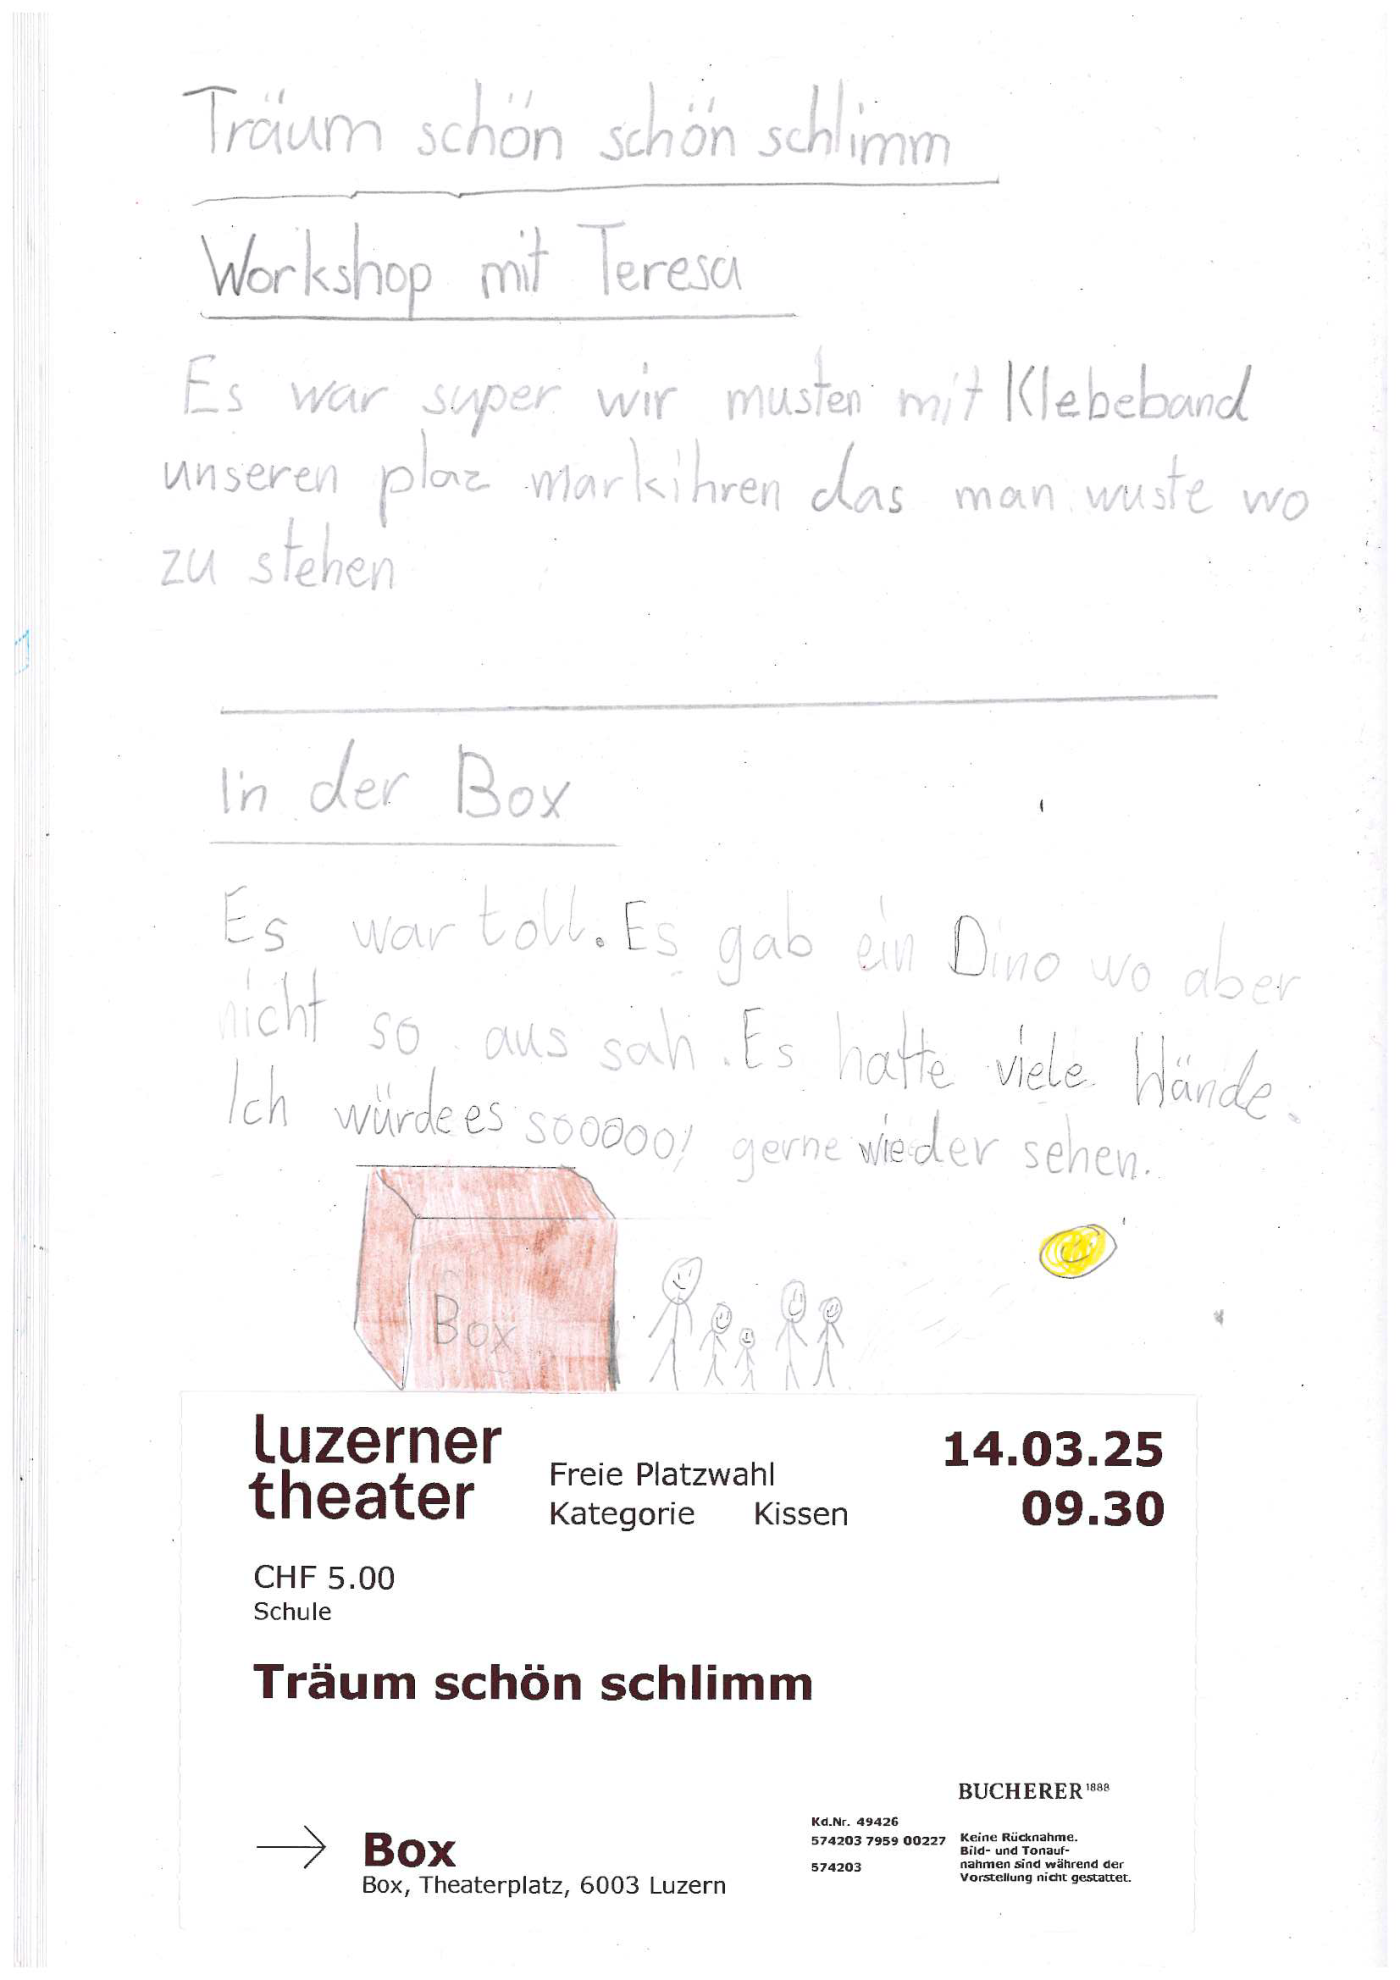 Träum schön schön schlimm
Workshop mit Teresa
Es war super wir musten mit Klebeband
unseren plaz markihren das man wuste wo
zu stehen
In der Box
Es war toll. Es gab ein Dino wo aber
nicht so aus sah. Es hatte viele Hände.
Ich würde es sooooo! gerne wieder sehen.
Box
luzerner
theater
Freie Platzwahl
Kategorie Kissen
14.03.25
09.30
CHF 5.00
Schule
Träum schön schlimm
BUCHERER 1888
→ Box
Box, Theaterplatz, 6003 Luzern
Kd.Nr. 49426
574203 7959 00227
574203
Keine Rücknahme.
Bild- und Tonauf-
nahmen sind während der
Vorstellung nicht gestattet.